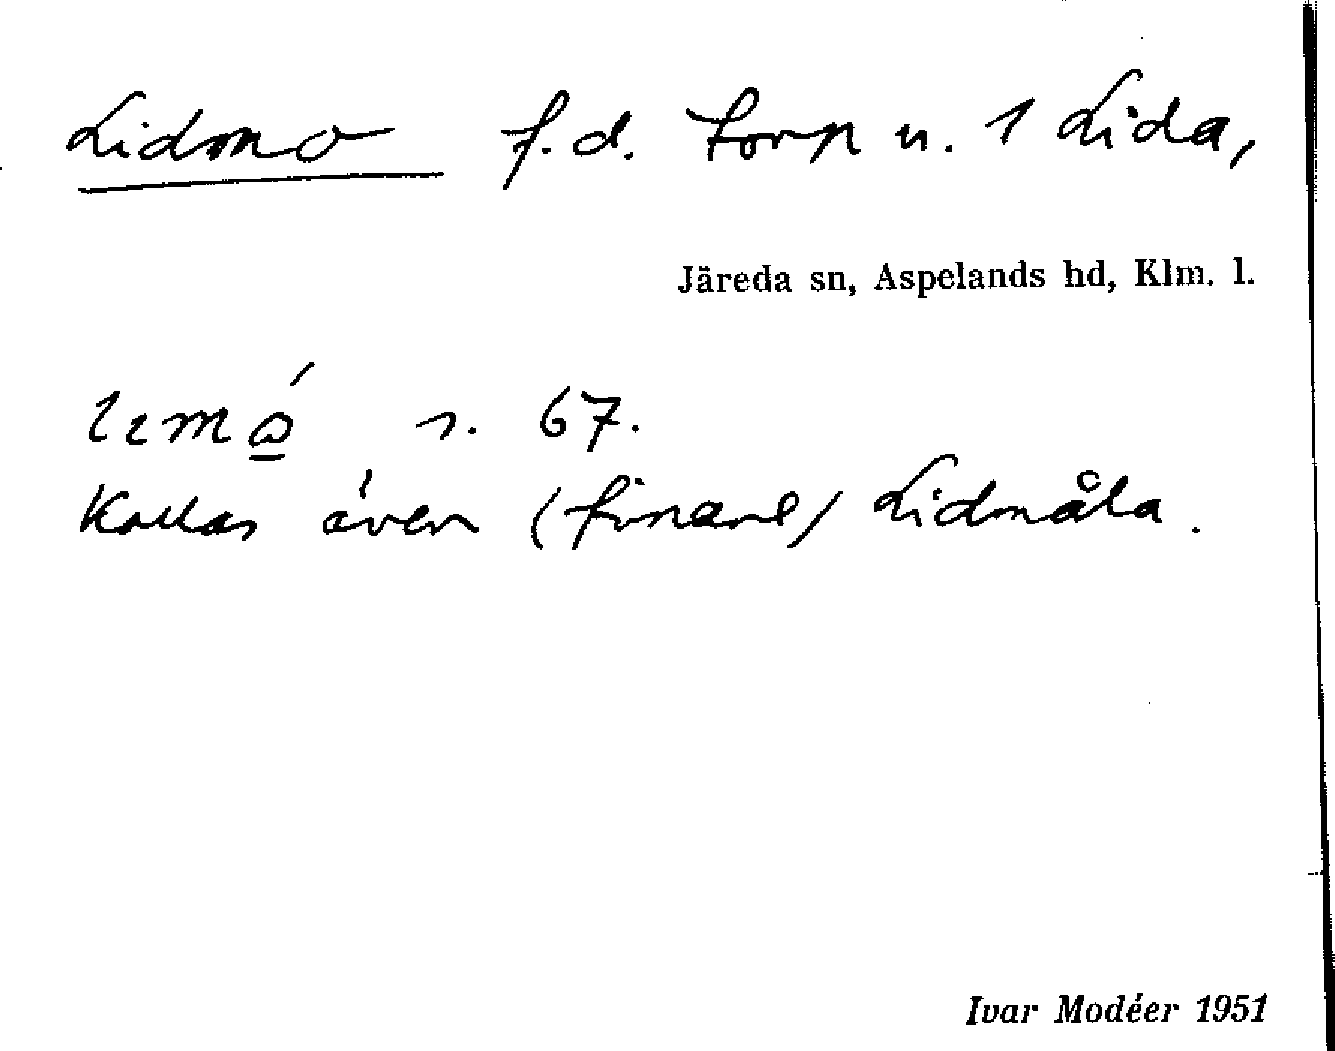 Lidmo f.d. torp u. 1 Lida,
Järeda sn, Aspelands hd, Klm. l.
s. 67.
Kallas även (finare) Lidmåla.
Ivar Modéer 1951